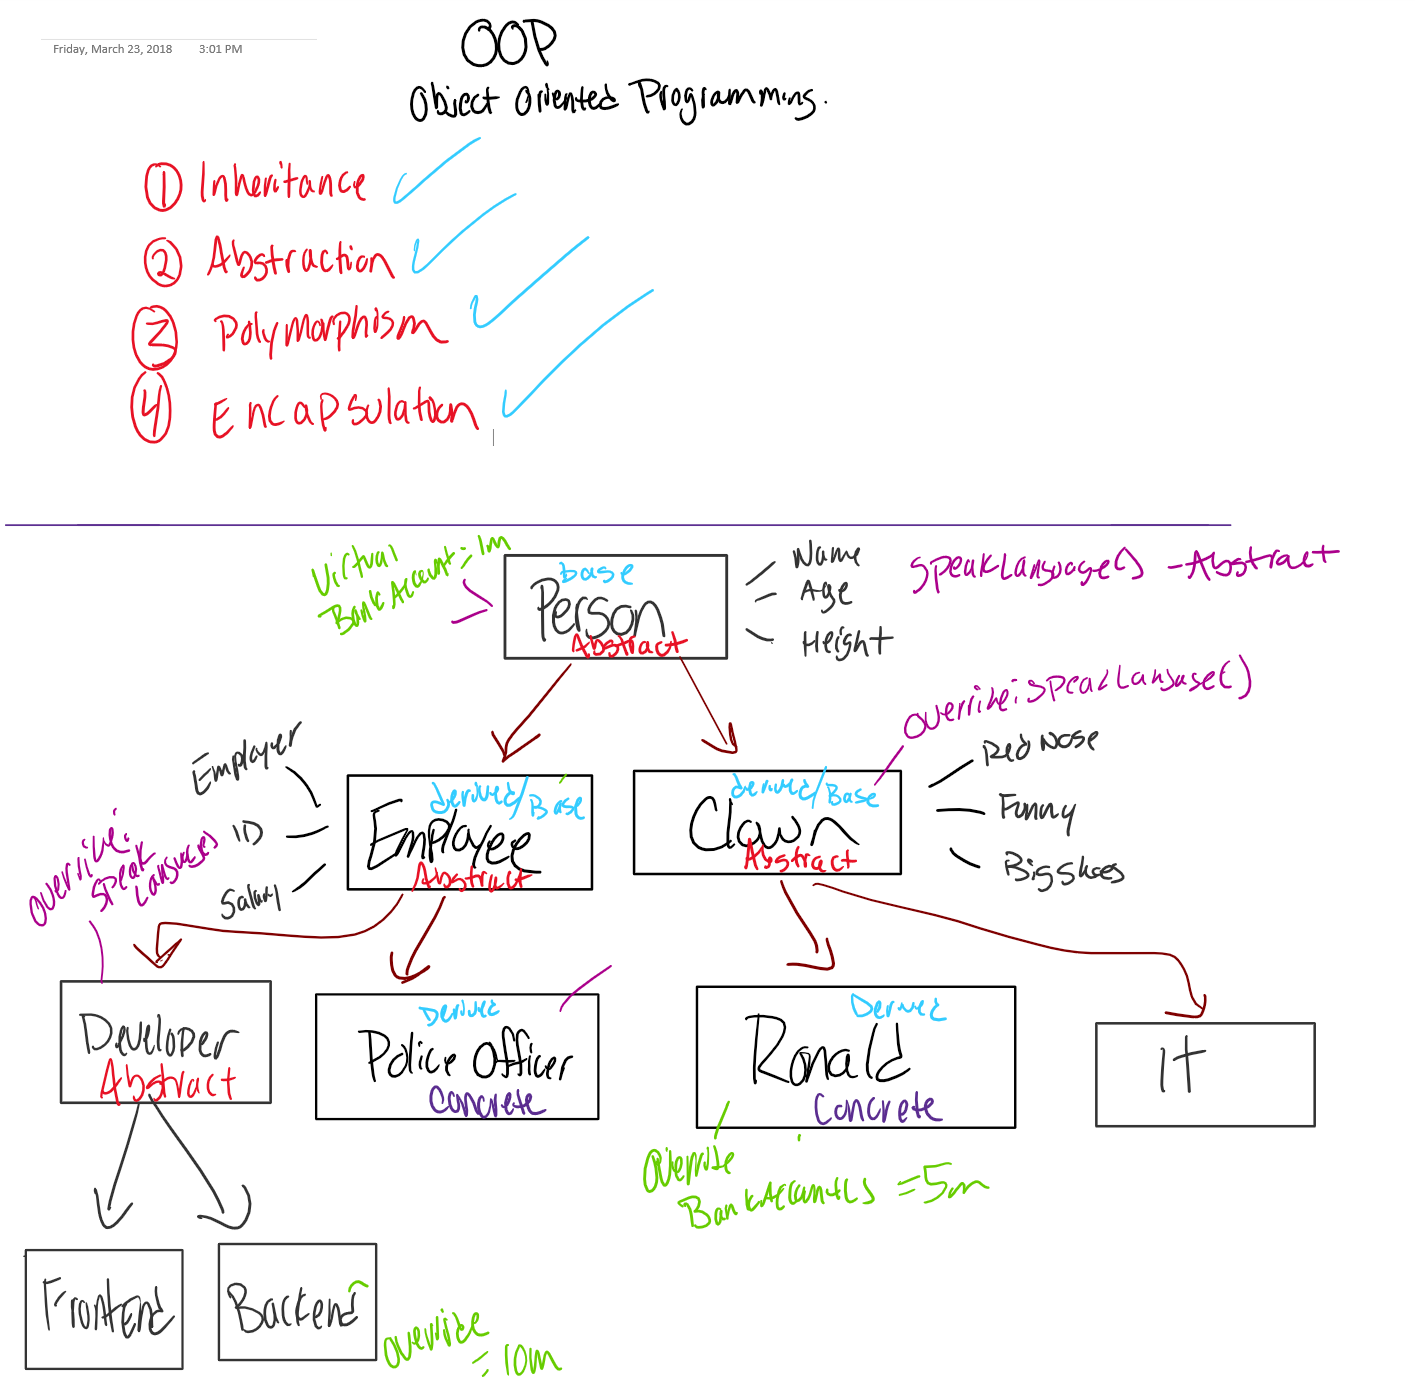 Friday, March 23, 2018 3:01 PM
OOP
Object Oriented Programming.
1 Inheritance
2 Abstraction
3 Polymorphism
4 Encapsulation
Virtual
BankAccount = 1m
Base
Person
Abstract
Name
Age
Height
SpeakLanguage() - Abstract
override: SpeakLanguage()
Employer
ID
Salary
derived/Base
Employee
Abstract
derived/Base
Clown
Abstract
Red Nose
Funny
Big Shoes
override:
Speak
Languages
Developer
Abstract
Derived
Police Officer
Concrete
Derived
Ronald
Concrete
It
override
BankAccount() = 5m
Frontend
Backend
override
= 10m